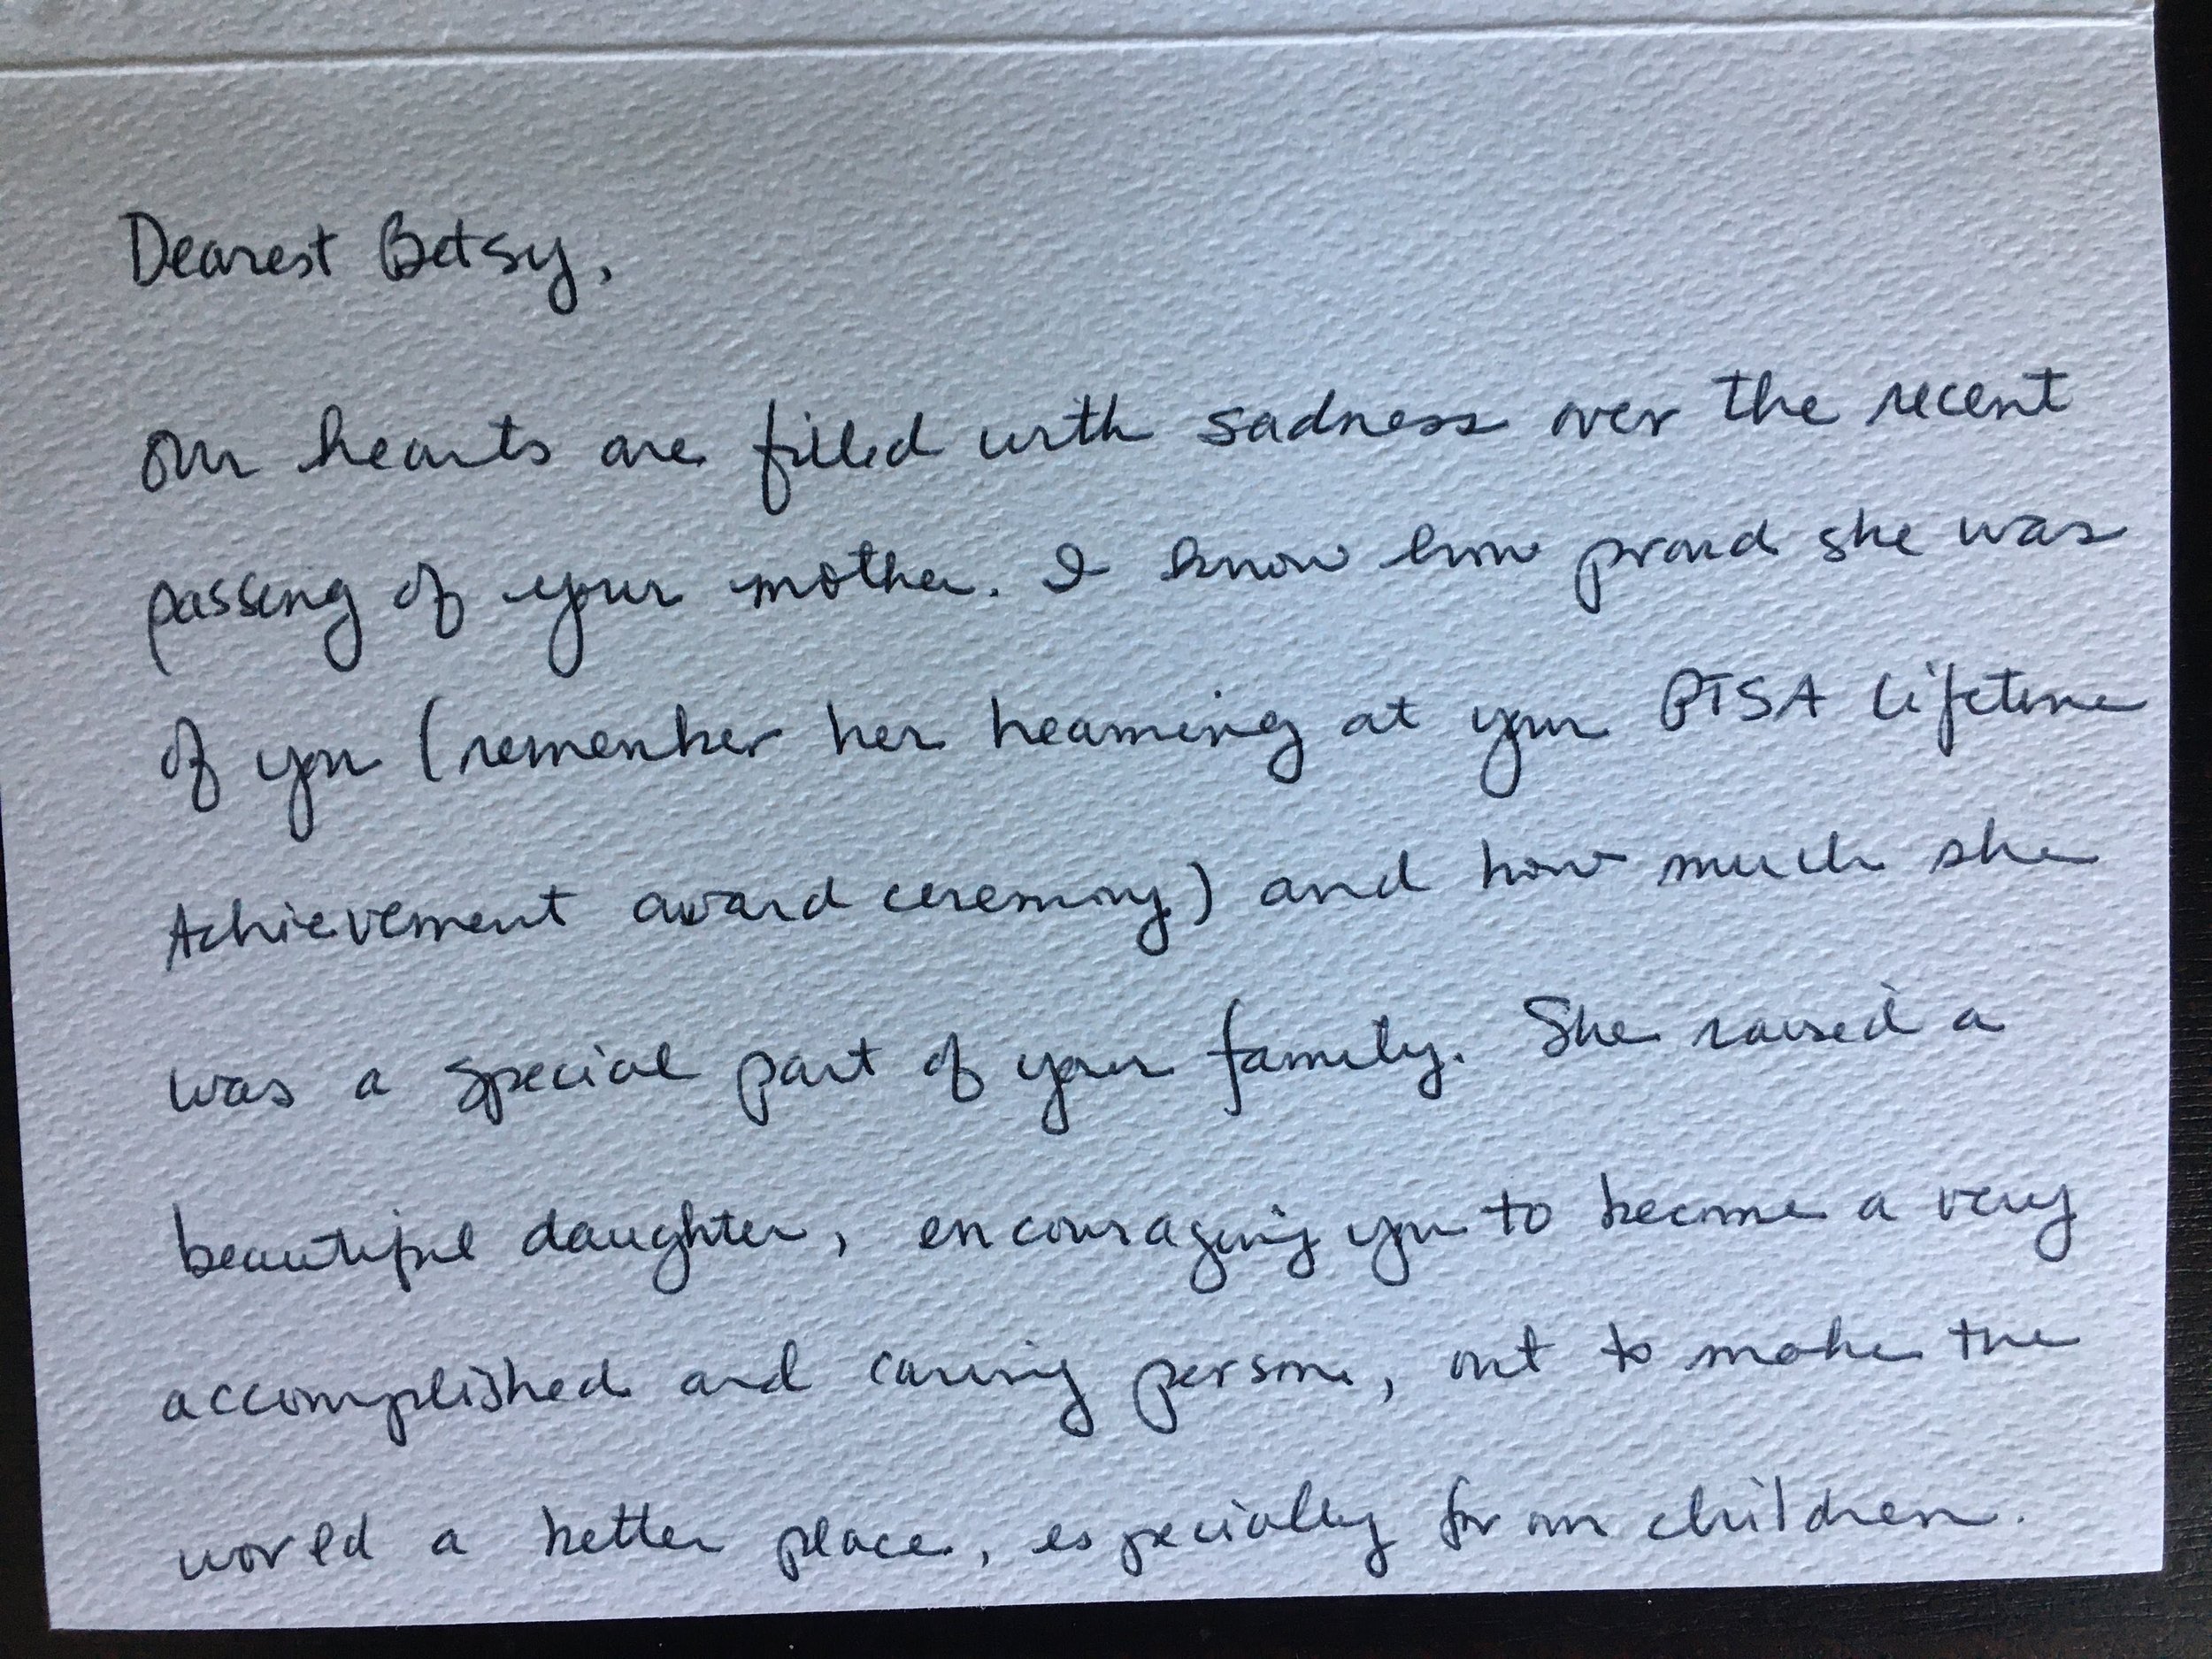 Dearest Betsy,
Our hearts are filled with sadness over the recent
passing of your mother. I know how proud she was
of you (remember her beaming at your PTSA Lifetime
Achievement award ceremony) and how much she
was a special part of your family. She raised a
beautiful daughter, encouraging you to become a very
accomplished and caring person, out to make the
world a better place, especially for our children.